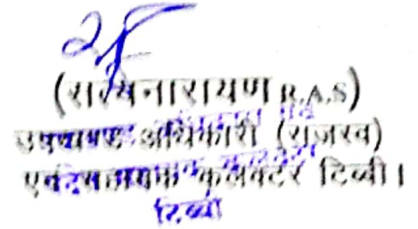 (सत्यनारायण R.A.S)
उपखण्ड अधिकारी (राजस्व)
एवं सहायक कलक्टर टिब्बी।
टिब्बी